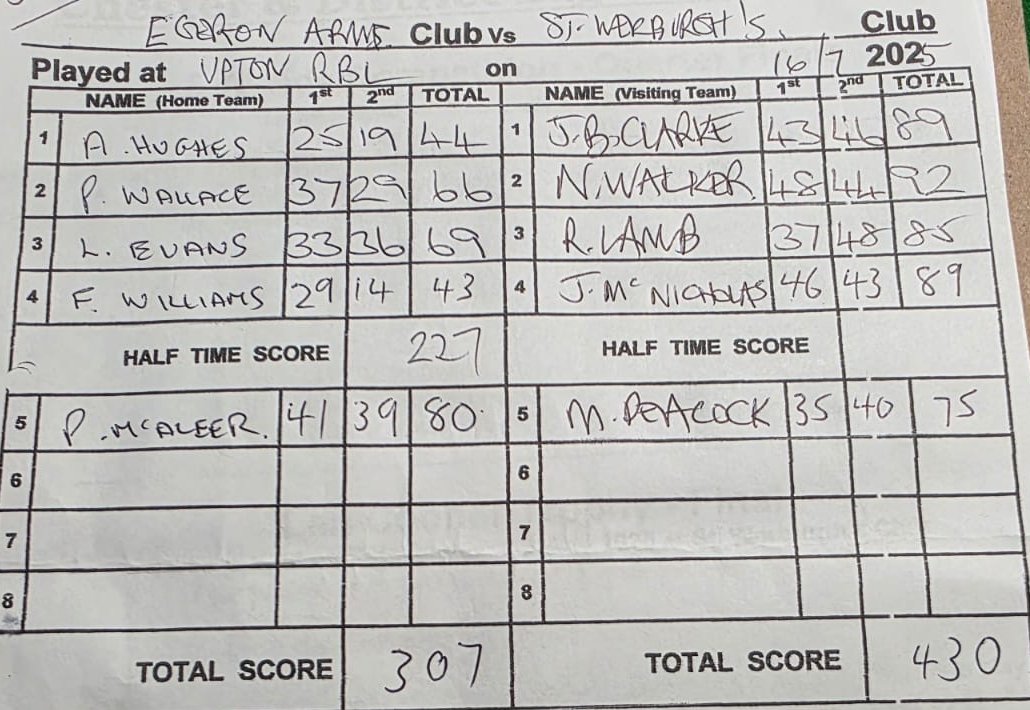 EGERON ARMS Club Vs ST. WERBURGH'S. Club
Played at UPTON RBL on 16/7 2025
NAME (Home Team) 1st 2nd TOTAL NAME (Visiting Team) 1st 2nd TOTAL
1 A. HUGHES 25 19 44 1 J.B. CLARKE 43 46 89
2 P. WALLACE 37 29 66 2 N. WALKER 48 44 92
3 L. EVANS 33 36 69 3 R. LAMB 37 48 85
4 F. WILLIAMS 29 14 43 4 J. Mc NICHOLAS 46 43 89
HALF TIME SCORE 227 HALF TIME SCORE
5 P. McALEER. 41 39 80 5 M. PEACOCK 35 40 75
6 6
7 7
8 8
TOTAL SCORE 307 TOTAL SCORE 430